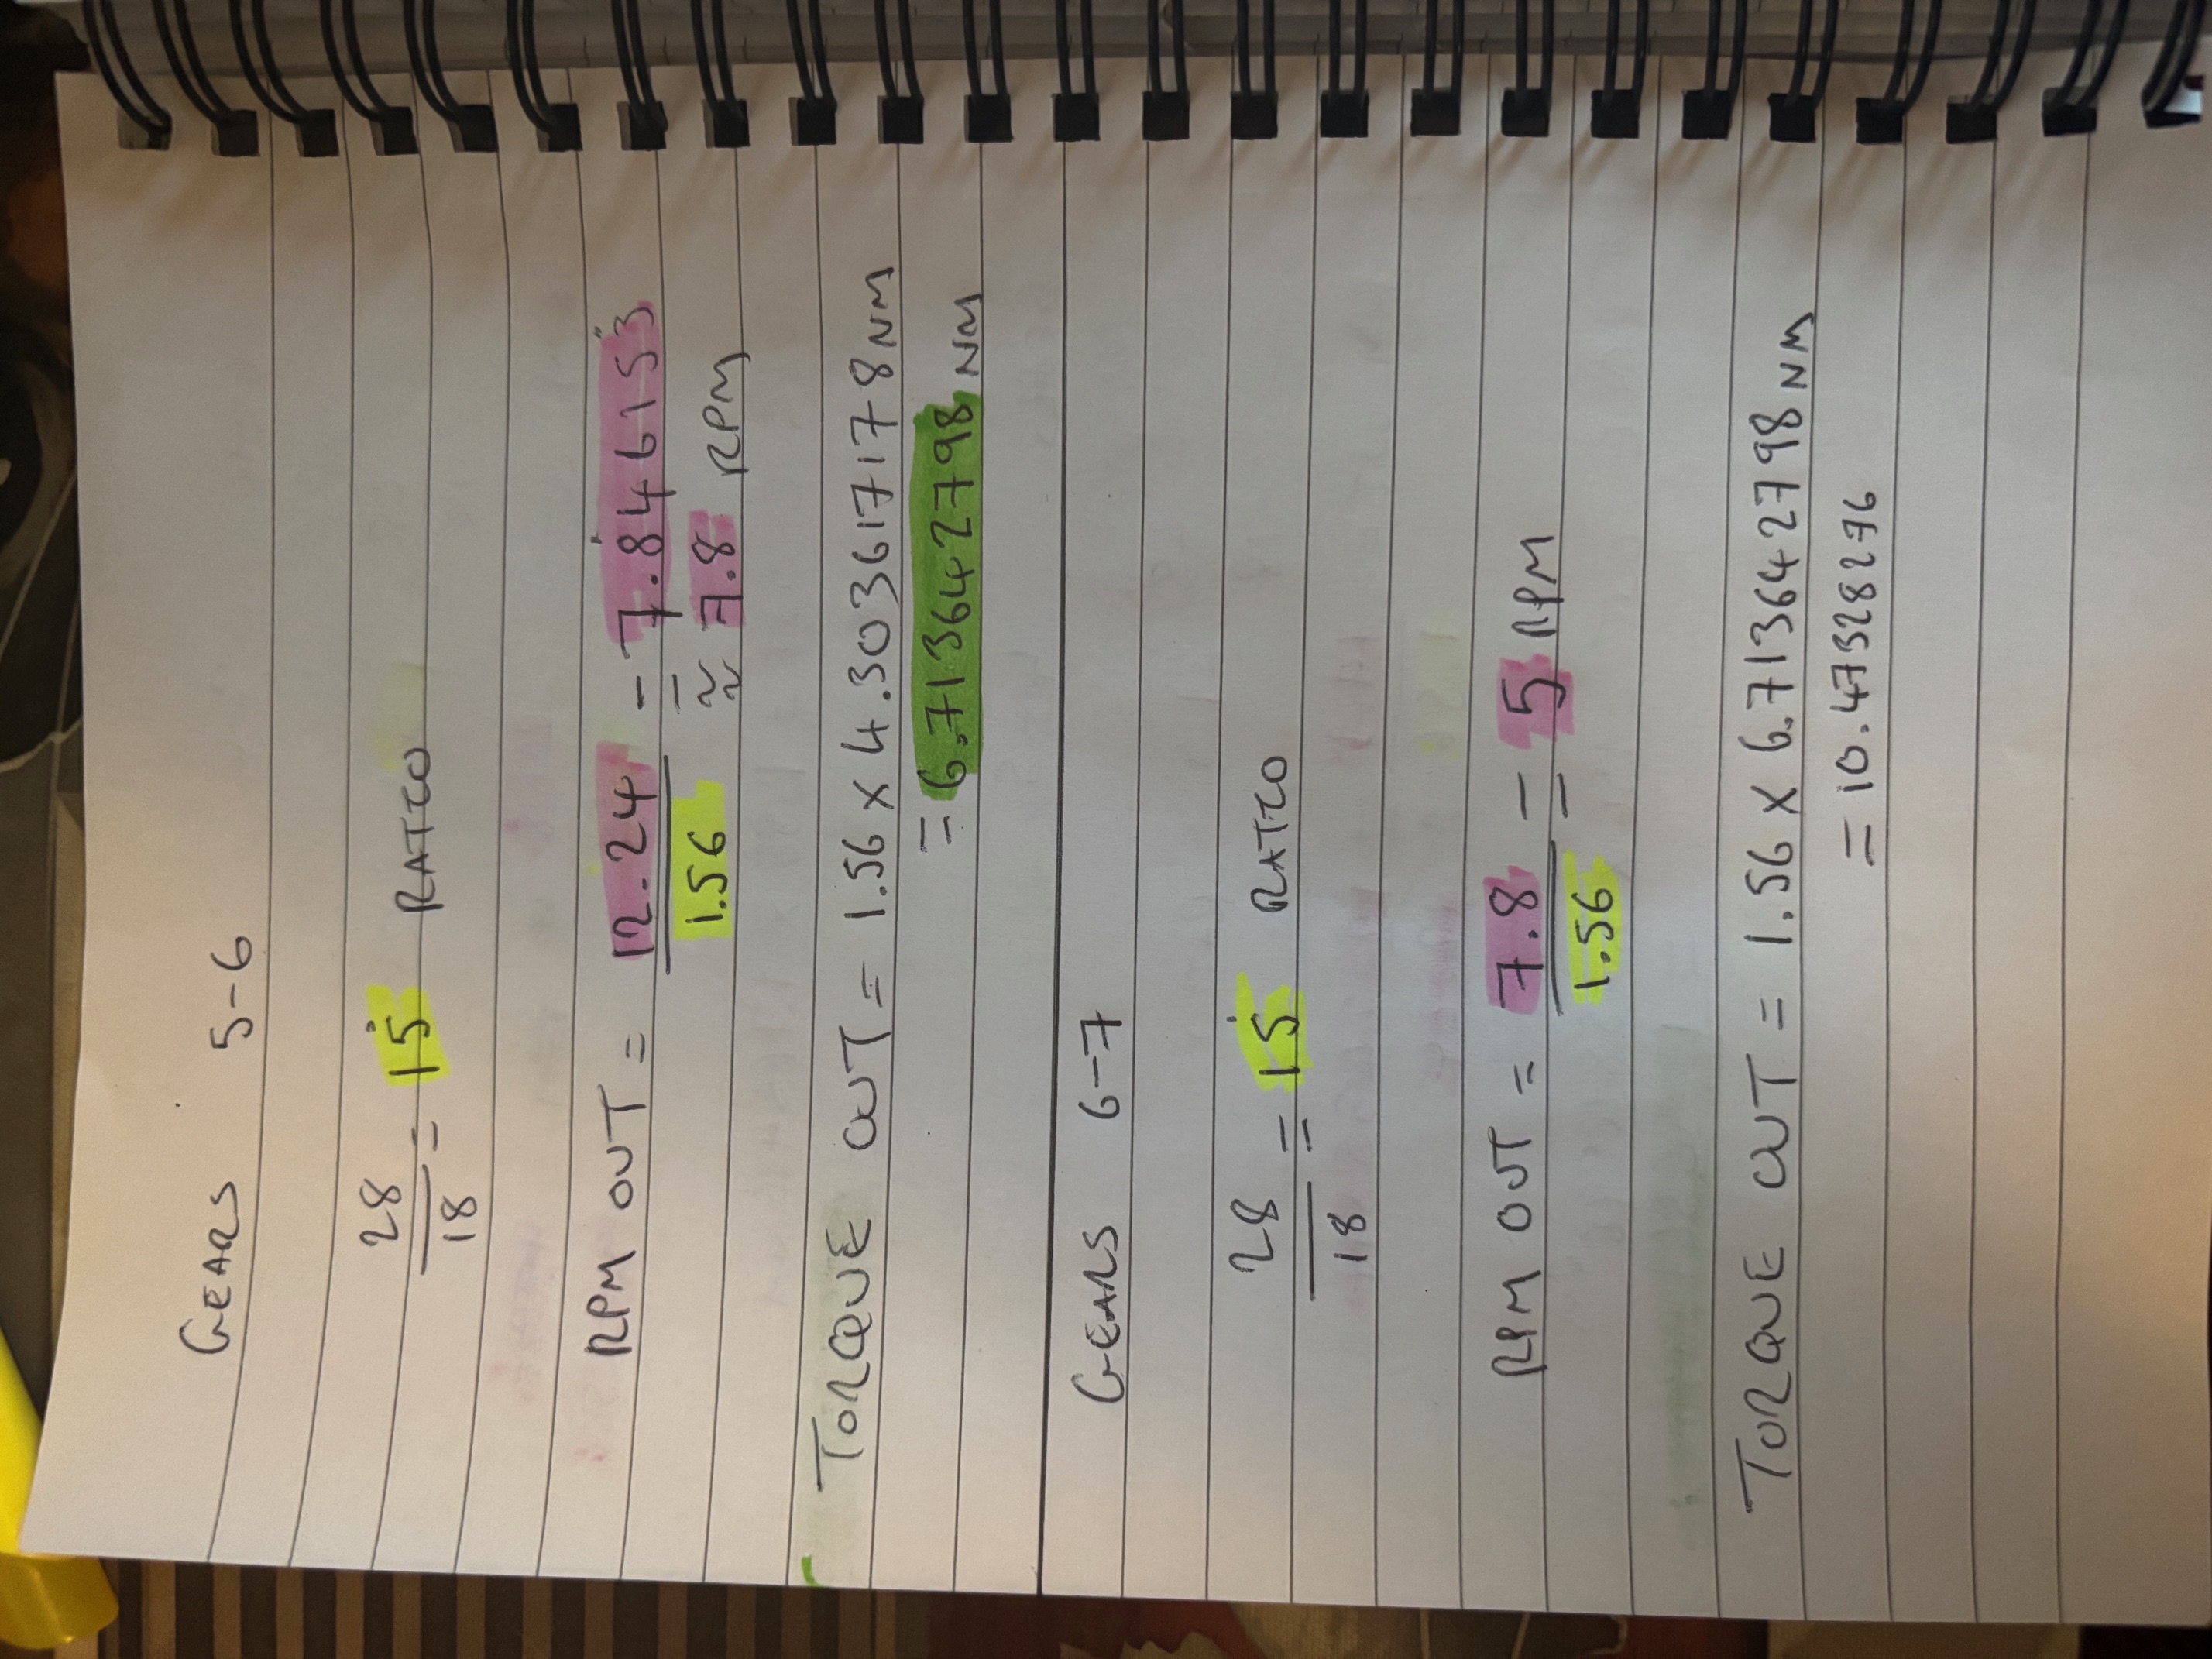 GEARS 5-6
28
18
= 15̇ RATIO
RPM OUT = 12.24 = 7.8̇46153̇
1.56 ≈ 7.8 RPM
TORQUE OUT = 1.56 x 4.303617178 NM
= 6.713642798 NM
GEARS 6-7
28
18
= 15̇ RATIO
RPM OUT = 7.8 = 5 RPM
1.56
TORQUE OUT = 1.56 x 6.713642798 NM
= 10.47328276